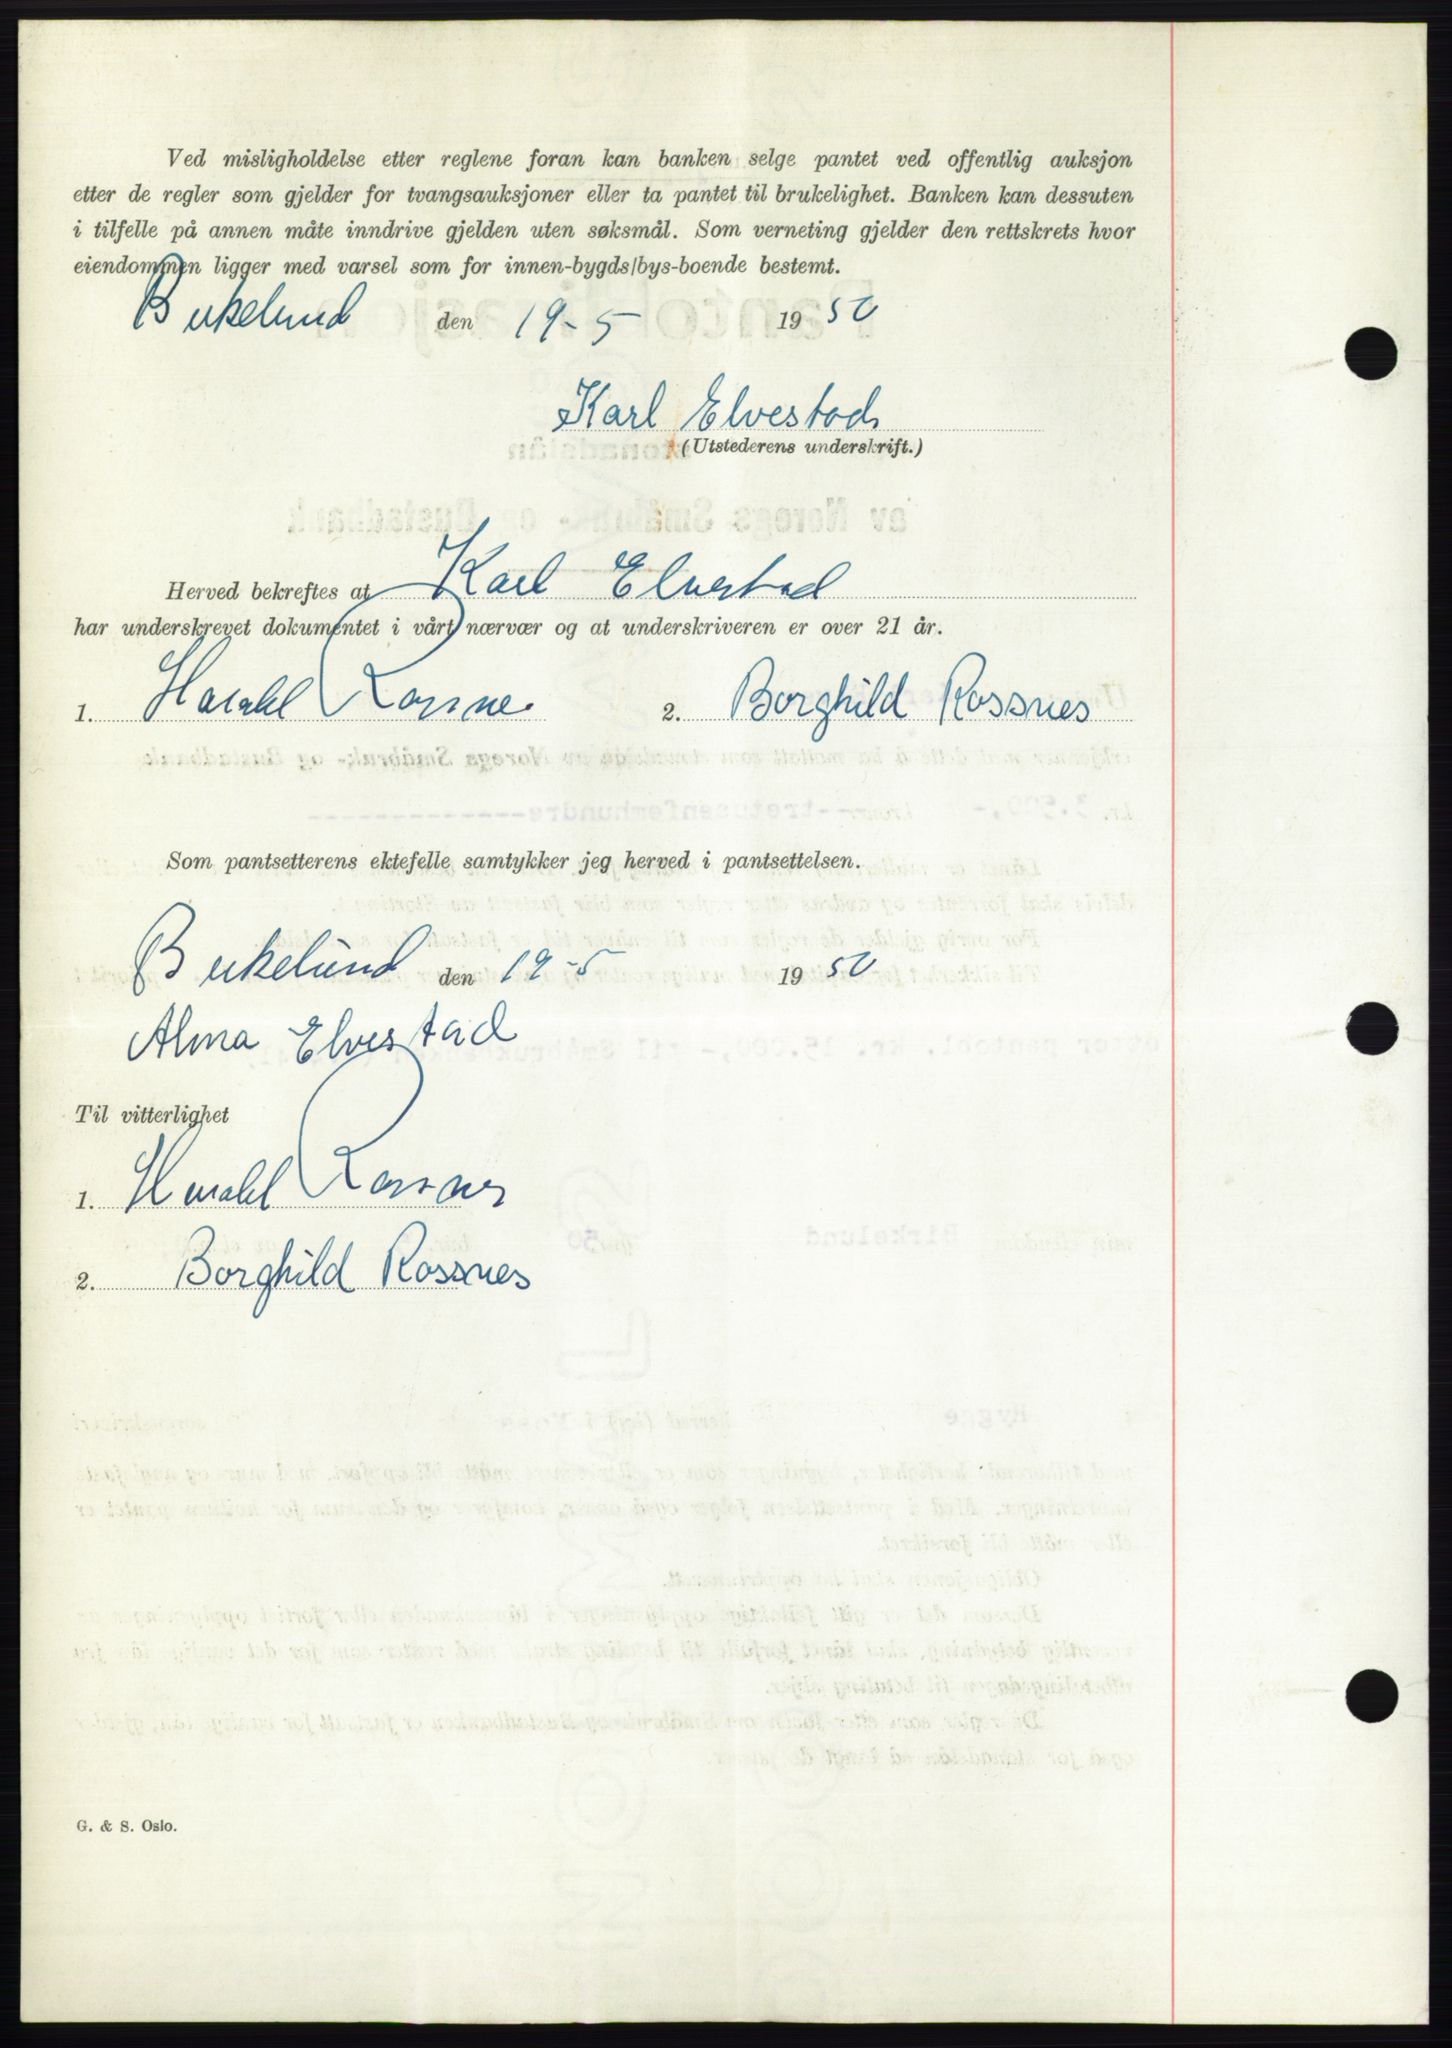 Ved misligholdelse etter reglene foran kan banken selge pantet ved offentlig auksjon
etter de regler som gjelder for tvangsauksjoner eller ta pantet til brukelighet. Banken kan dessuten
i tilfelle på annen måte inndrive gjelden uten søksmål. Som verneting gjelder den rettskrets hvor
eiendommen ligger med varsel som for innen-bygds/bys-boende bestemt.
Birkelund den 19-5 1950
Karl Elvestad
(Utstederens underskrift.)
Herved bekreftes at Karl Elvestad
har underskrevet dokumentet i vårt nærvær og at underskriveren er over 21 år.
1. Harald Rossnes 2. Borghild Rossnes
Som pantsetterens ektefelle samtykker jeg herved i pantsettelsen.
Birkelund den 19-5 1950
Alma Elvestad
Til vitterlighet
1. Harald Rossnes
2. Borghild Rossnes
G. & S. Oslo.